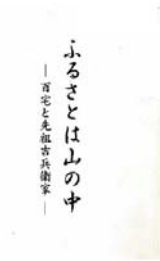 ふるさとは山の中
―百宅と先祖吉兵衛家―